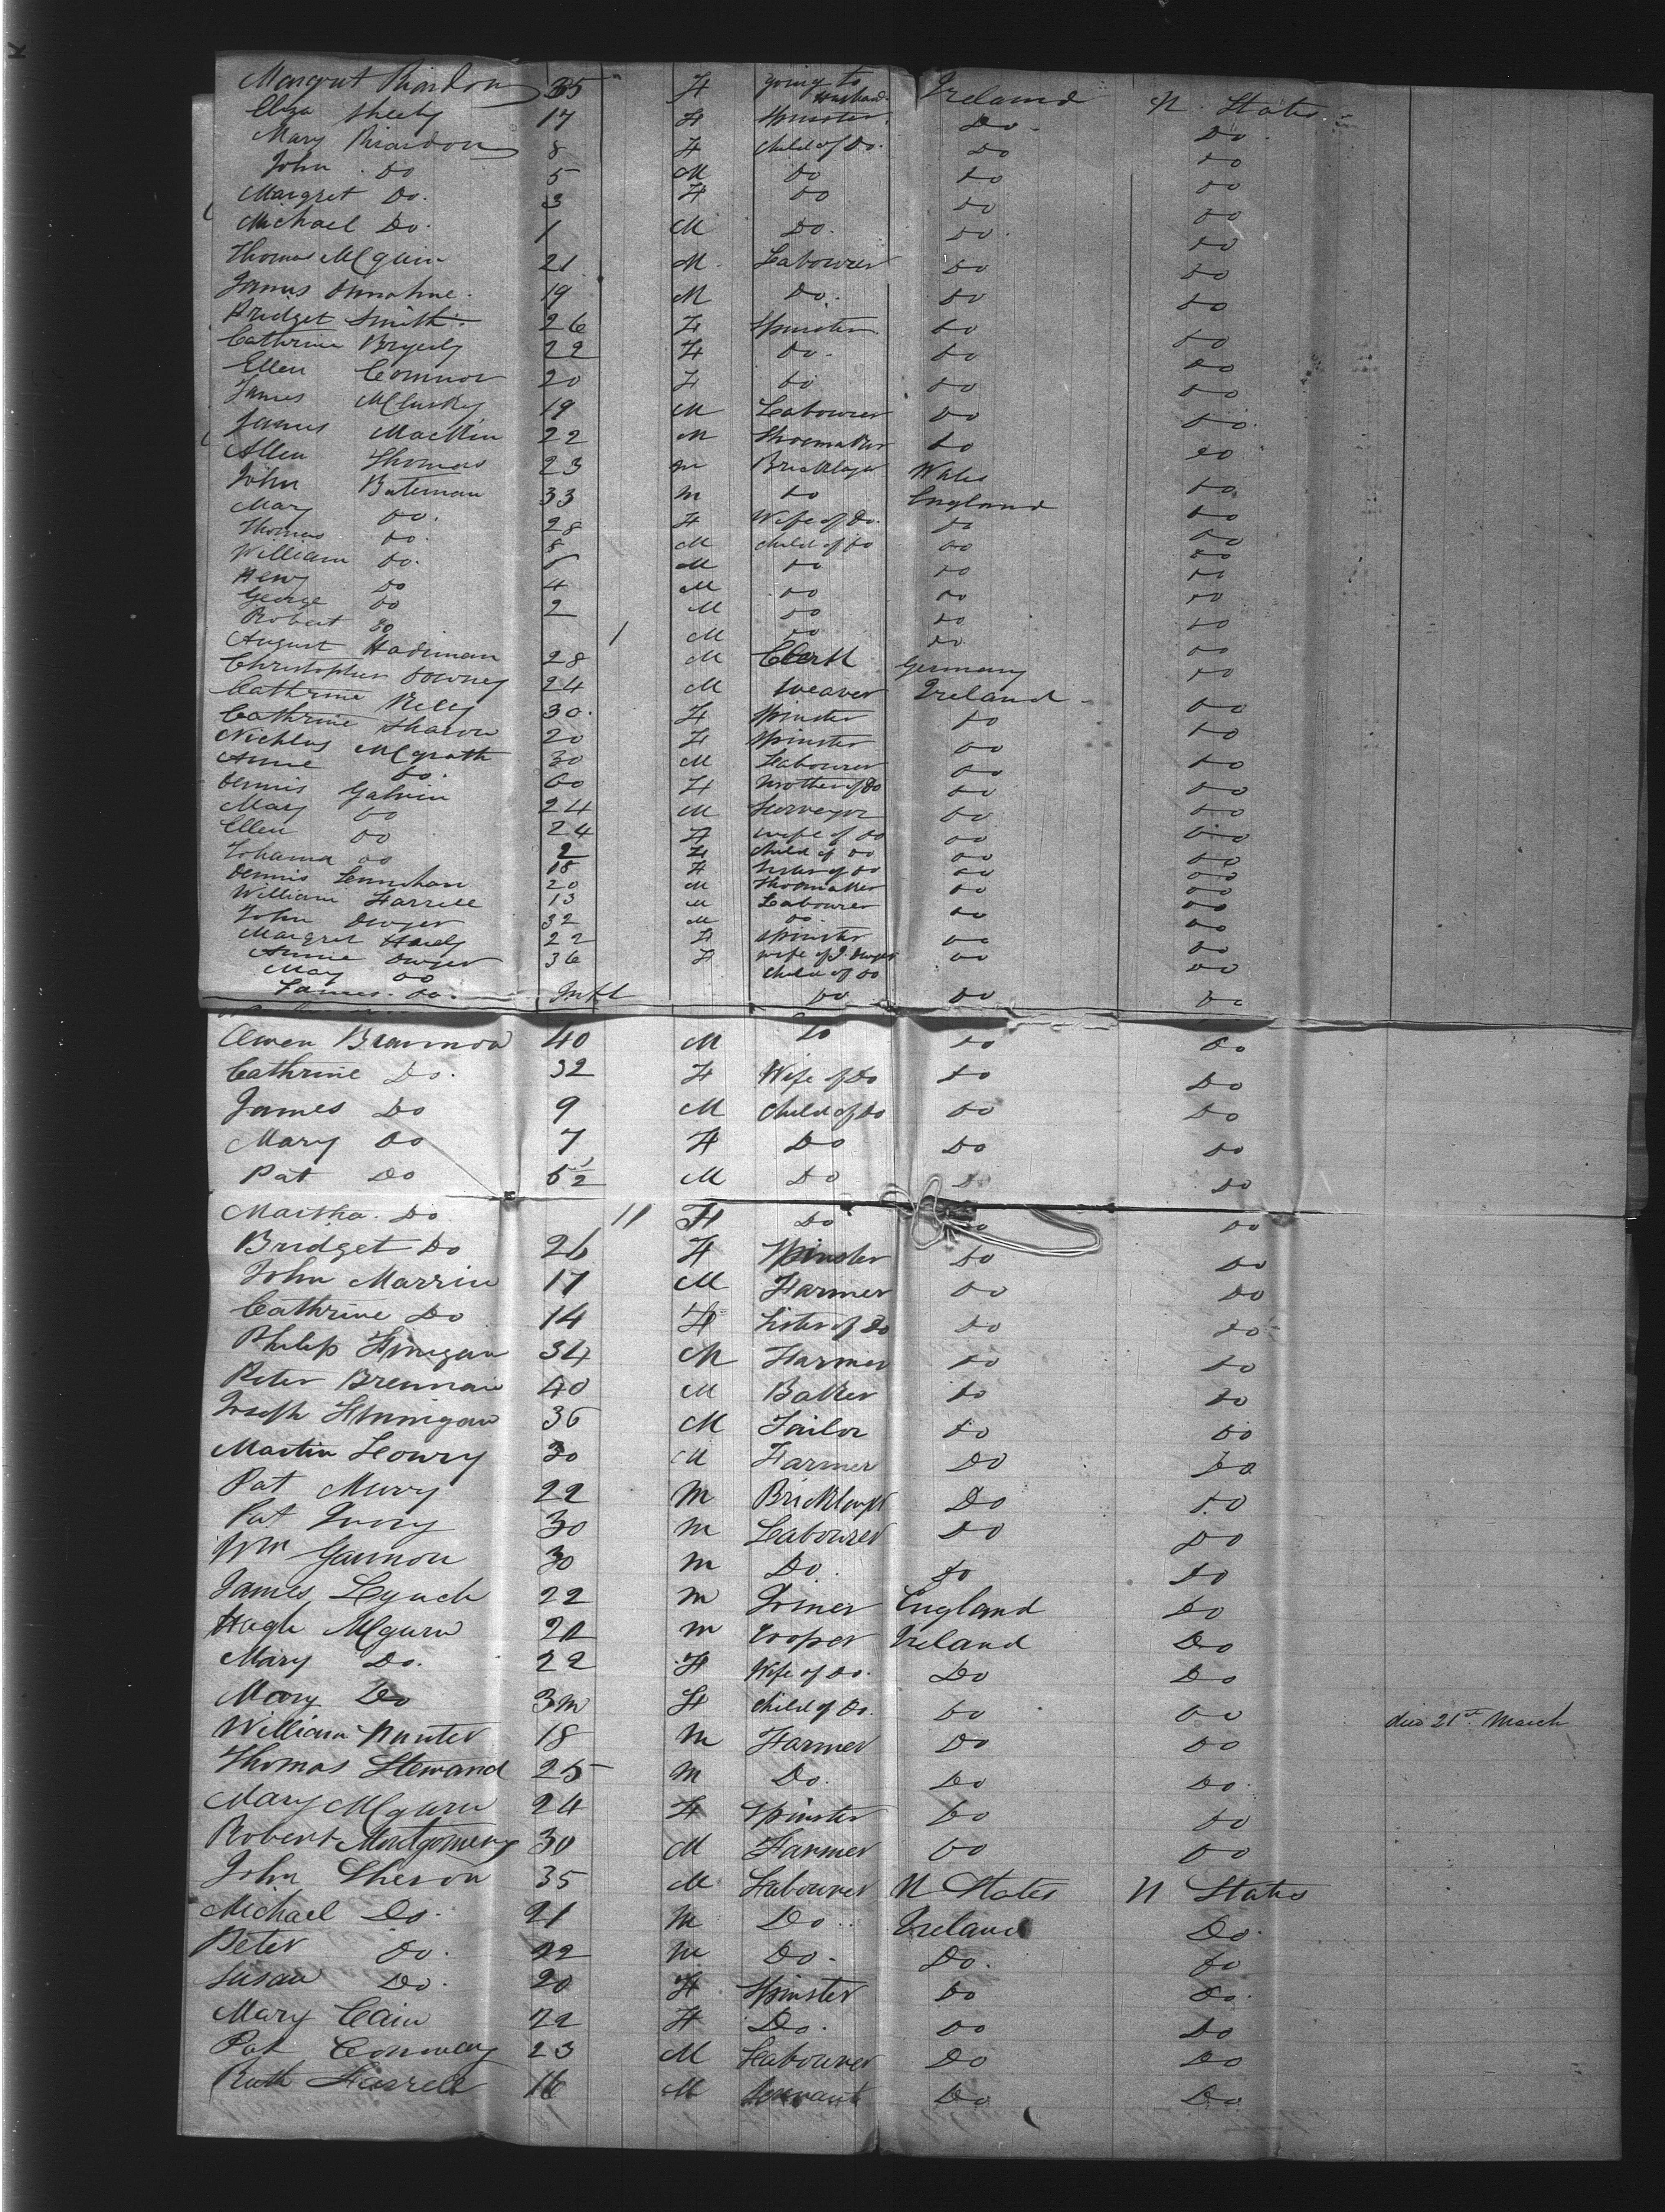 Margret Riordon 35 F going to Husband Ireland N. States
Eliza Sheehy 17 F Spinster Do Do
Mary Riordon 8 F Child of Do Do Do
John Do 5 M Do Do Do
Margret Do 3 F Do Do Do
Michael Do 1 M Do Do Do
Thomas McGuin 21 M Labourer Do Do
James Donohue 19 M Do Do Do
Bridget Smith 26 F Spinster Do Do
Cathrine Bryerly 22 F Do Do Do
Ellen Connor 20 F Do Do Do
James McClusky 19 M Labourer Do Do
James Mackin 22 M Shoemaker Do Do
Allen Thomas 23 M Bricklayer Wales Do
John Bateman 33 M Do England Do
Mary Do 28 F Wife of Do Do Do
Thomas Do 8 M Child of Do Do Do
William Do M Do Do Do
Henry Do 4 M Do Do Do
George Do 2 M Do Do Do
Robert Do 1 M Do Do Do
August Hadiman 28 M Clerk Germany Do
Christopher Downey 24 M Weaver Ireland Do
Cathrine Riley 30 F Spinster Do Do
Cathrine Sharon 20 F Spinster Do Do
Nichlas McGrath 30 M Labourer Do Do
Anne Do 60 F Mother of Do Do Do
Dennis Galvin 24 M Surveyor Do Do
Mary Do 24 F Wife of Do Do Do
Ellen Do 2 F Child of Do Do Do
Johanna Do 18 F Sister of Do Do Do
Dennis Lenehan 20 M Shoemaker Do Do
William Farrell 13 M Labourer Do Do
John Dwyer 32 M Do Do Do
Margret Hardy 22 F Spinster Do Do
Annie Dwyer 36 F Wife of J. Dwyer Do Do
Mary Do Child of Do
James Do Inft Do Do Do
Owen Brannon 40 M Do Do Do
Cathrine Do 32 F Wife of Do Do Do
James Do 9 M Child of Do Do Do
Mary Do 7 F Do Do Do
Pat Do 5½ M Do Do Do
Martha Do 11 F Do Do Do
Bridget Do 26 F Spinster Do Do
John Marrin 17 M Farmer Do Do
Cathrine Do 14 F Sister of Do Do Do
Philip Finigan 34 M Farmer Do Do
Peter Brennan 40 M Baker Do Do
Joseph Finnigan 36 M Tailor Do Do
Martin Lowry 30 M Farmer Do Do
Pat Murry 22 M Bricklayer Do Do
Pat 30 M Labourer Do Do
Wm Gannon 30 M Do Do Do
James Lynch 22 M Joiner England Do
Hugh McGurn M Cooper Ireland Do
Mary Do 22 F Wife of Do Do Do
Mary Do 3m F Child of Do Do Do died 21st March
William Hunter 18 M Farmer Do Do
Thomas Steward 25 M Do Do Do
Mary McGurn 24 F Spinster Do Do
Robert Montgomery 30 M Farmer Do Do
John Sheron 35 M Labourer N States N States
Michael Do 21 M Do Ireland Do
Peter Do 22 M Do Do Do
Susan Do 20 F Spinster Do Do
Mary Cain 22 F Do Do Do
Pat Conway 23 M Labourer Do Do
Farrell 16 M Servant Do Do